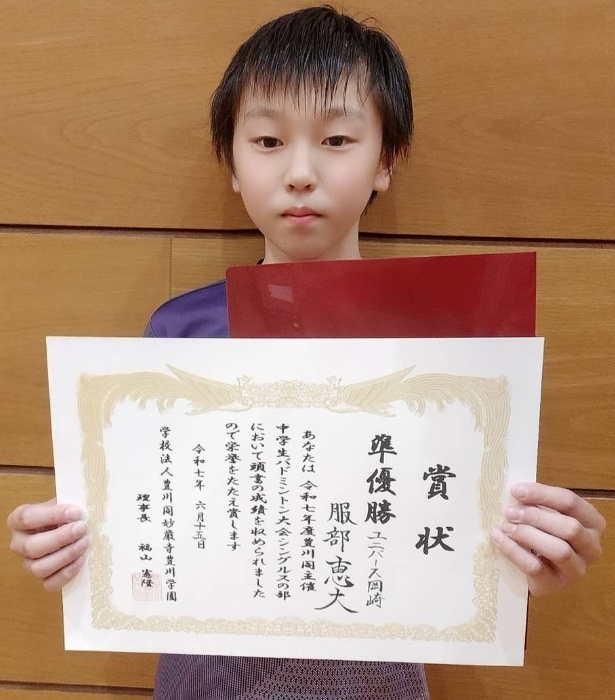 賞状
準優勝
ユニバース岡崎
服部恵大
あなたは令和七年度豊川閣主催
中学生バドミントン大会シングルスの部
において頭書の成績を収められました
ので栄誉をたたえ賞します
令和七年 六月十五日
学校法人豊川閣妙厳寺豊川学園
理事長 福山憲隆